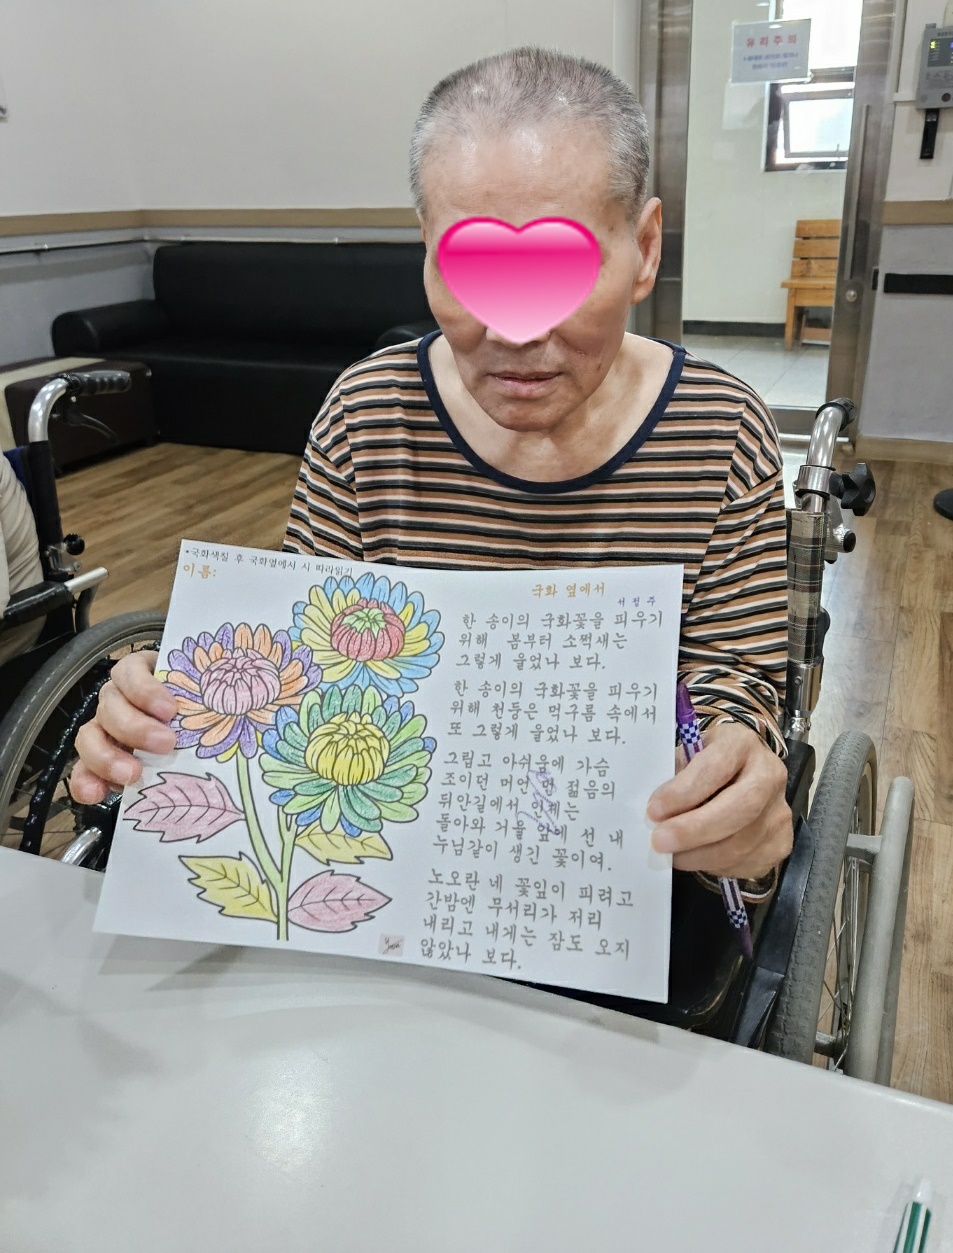 유리주의
•국화색칠 후 국화옆에서 시 따라읽기
이름:
국화 옆에서
서정주
한 송이의 국화꽃을 피우기
위해 봄부터 소쩍새는
그렇게 울었나 보다.
한 송이의 국화꽃을 피우기
위해 천둥은 먹구름 속에서
또 그렇게 울었나 보다.
그립고 아쉬움에 가슴
조이던 머언 먼 젊음의
뒤안길에서 인제는
돌아와 거울 앞에 선 내
누님같이 생긴 꽃이여.
노오란 네 꽃잎이 피려고
간밤엔 무서리가 저리
내리고 내게는 잠도 오지
않았나 보다.